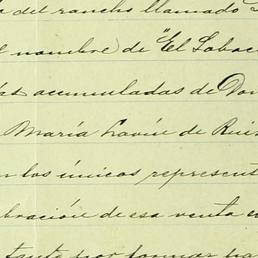 del rancho llamado
nombre de "El Sabac
acumuladas de Don
María Lavín de Ruiz
los únicos represent
bración de esa venta
tanto por formar